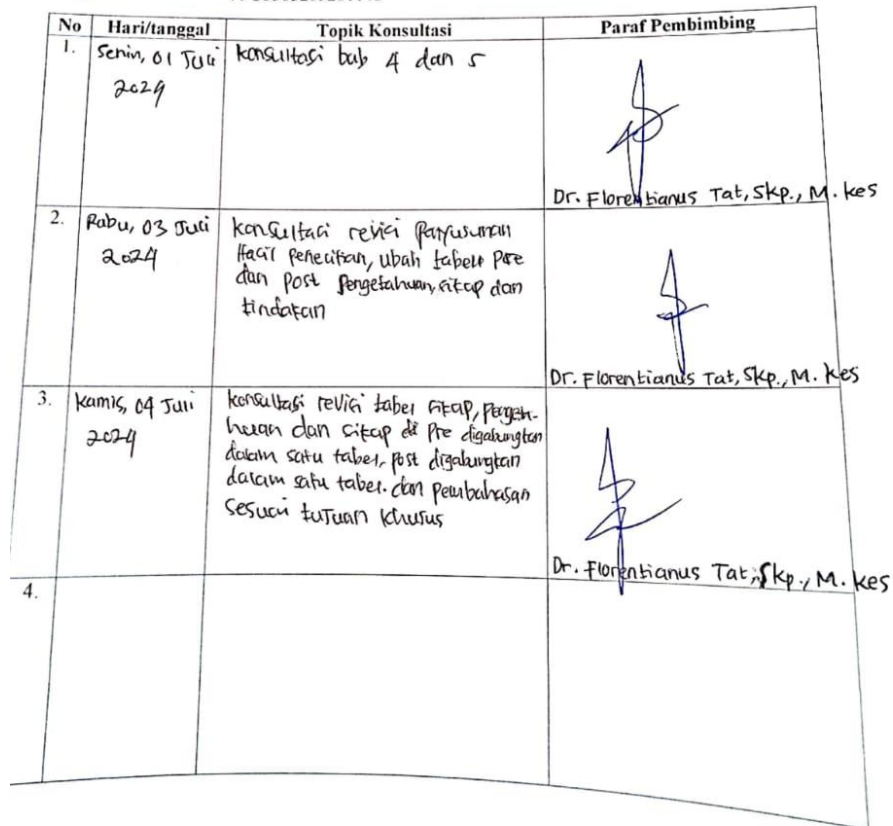 No Hari/tanggal Topik Konsultasi Paraf Pembimbing
1. Senin, 01 Juli konsultasi bab 4 dan 5
2024
Dr. Florentianus Tat, Skp., M. kes
2. Rabu, 03 Juli konsultasi revisi Penyusunan
2024 Hasil Penelitian, ubah tabel Pre
dan post Pengetahuan, sikap dan
tindakan
Dr. Florentianus Tat, Skp., M. kes
3. kamis, 04 Juli konsultasi revisi tabel sikap, penget-
2024 huan dan sikap di Pre digabungkan
dalam satu tabel, post digabungkan
dalam satu tabel. dan pembahasan
sesuai tujuan khusus
Dr. Florentianus Tat, Skp., M. kes
4.